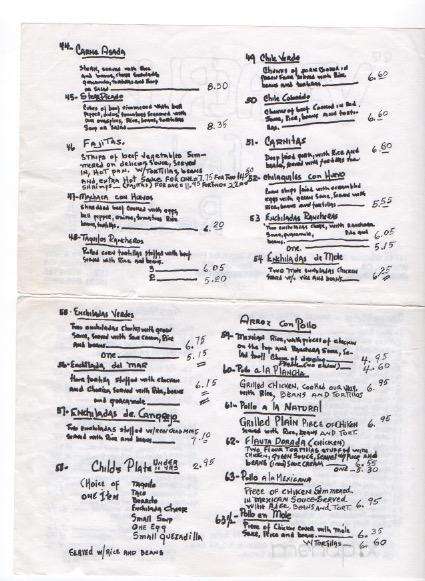 44- Carne Asada
Steak, served with Rice
and beans, cheese enchilada
guacamole, tortillas and Soup
or Salad 8.50
45- Steak Picado
Cubes of beef simmered with bell
Pepper, onions, tomatoes seasoned with
Rice, beans, tortillas
Soup or Salad 8.35
46 FAJITAS.
STRIPS OF BEEF VEGETABLES SIM-
MERED ON delicious SAUCE, SERVED
IN HOT PAN. W/TORTILLAS, BEANS
AND, EXTRA HOT SAUCE FOR ONE 7.75 FOR TWO
SHRIMPS (FAJITAS) FOR ONE 11.95 FOR TWO
47- Machaca con Huevos
Shredded beef cooked with eggs
bell pepper, onions, tomatoes Rice
beans, tortillas 6.20
48- Taquitos Rancheros
Rolled corn tortillas stuffed with beef
Served with Rice and beans.
3 6.05
2 5.20
49 Chile Verde
Chunks of pork cooked in
green sauce served with Rice,
beans and tortillas 6.60
50 Chile Colorado
Chunks of beef Cooked in Red
Sauce, Rice, beans and torti-
llas. 6.60
51- CARNITAS
Deep fried pork, with Rice and
beans, served with tortillas 6.60
52- Chilaquiles con Huevo
Corn chips fried with scrambled
eggs with green sauce, Served with
Rice, beans and tortillas 5.55
53 Enchiladas Rancheras
Two enchiladas cheese, with Ranchera
Sauce, guacamole, Rice and
beans 6.05
one. 5.15
54 Enchiladas de Mole
Two mole enchiladas chicken
Served w/ rice and beans 6.25
55- Enchiladas Verdes
Two enchiladas chicken with green
Sauce, Served with Sour cream, Rice
and beans 6.75
one 5.15
56- Enchilada del mar
flour tortilla stuffed with chicken
and cheese, served with Rice, beans
and guacamole 6.15
57- Enchiladas de Cangrejo
Two enchiladas stuffed w/ fresh crab
Served with Rice and beans 7.10
58- Child's Plate UNDER 12 YRS 2.95
Choice of
One Item
Taquito
Taco
Burrito
Enchilada Cheese
Small Soup
One Egg
Small Quesadilla
Served w/Rice and beans
Arroz con Pollo
59- Mexican Rice, with pieces of chicken
on the top and Ranchera Sauce, Sa-
lad 4.95
4.60
60- Pollo a la PLANCHA
Grilled chicken, cooked our way. 6.95
with Rice, BEANS AND TORTILLAS
61- Pollo a la NATURAL
GRILLED PLAIN PIECE OF CHICKEN 6.95
Served with Rice, beans AND TORT.
62- FLAUTA DORADA (CHICKEN)
TWO FLOUR TORTILLAS STUFFED WITH
CHICKEN, GREEN SAUCE, SERVED W/RICE AND
BEANS SOUR CREAM 6.55
63- Pollo a la Mexicana
PIECE OF CHICKEN SIMMERED
IN MEXICAN SAUCE-SERVED 6.95
WITH RICE, BEANS, AND TORT.
63½- Pollo en Mole
Piece of Chicken cover with mole
Sauce, Rice and beans. 6.35
W/TORTILLAS 6.60